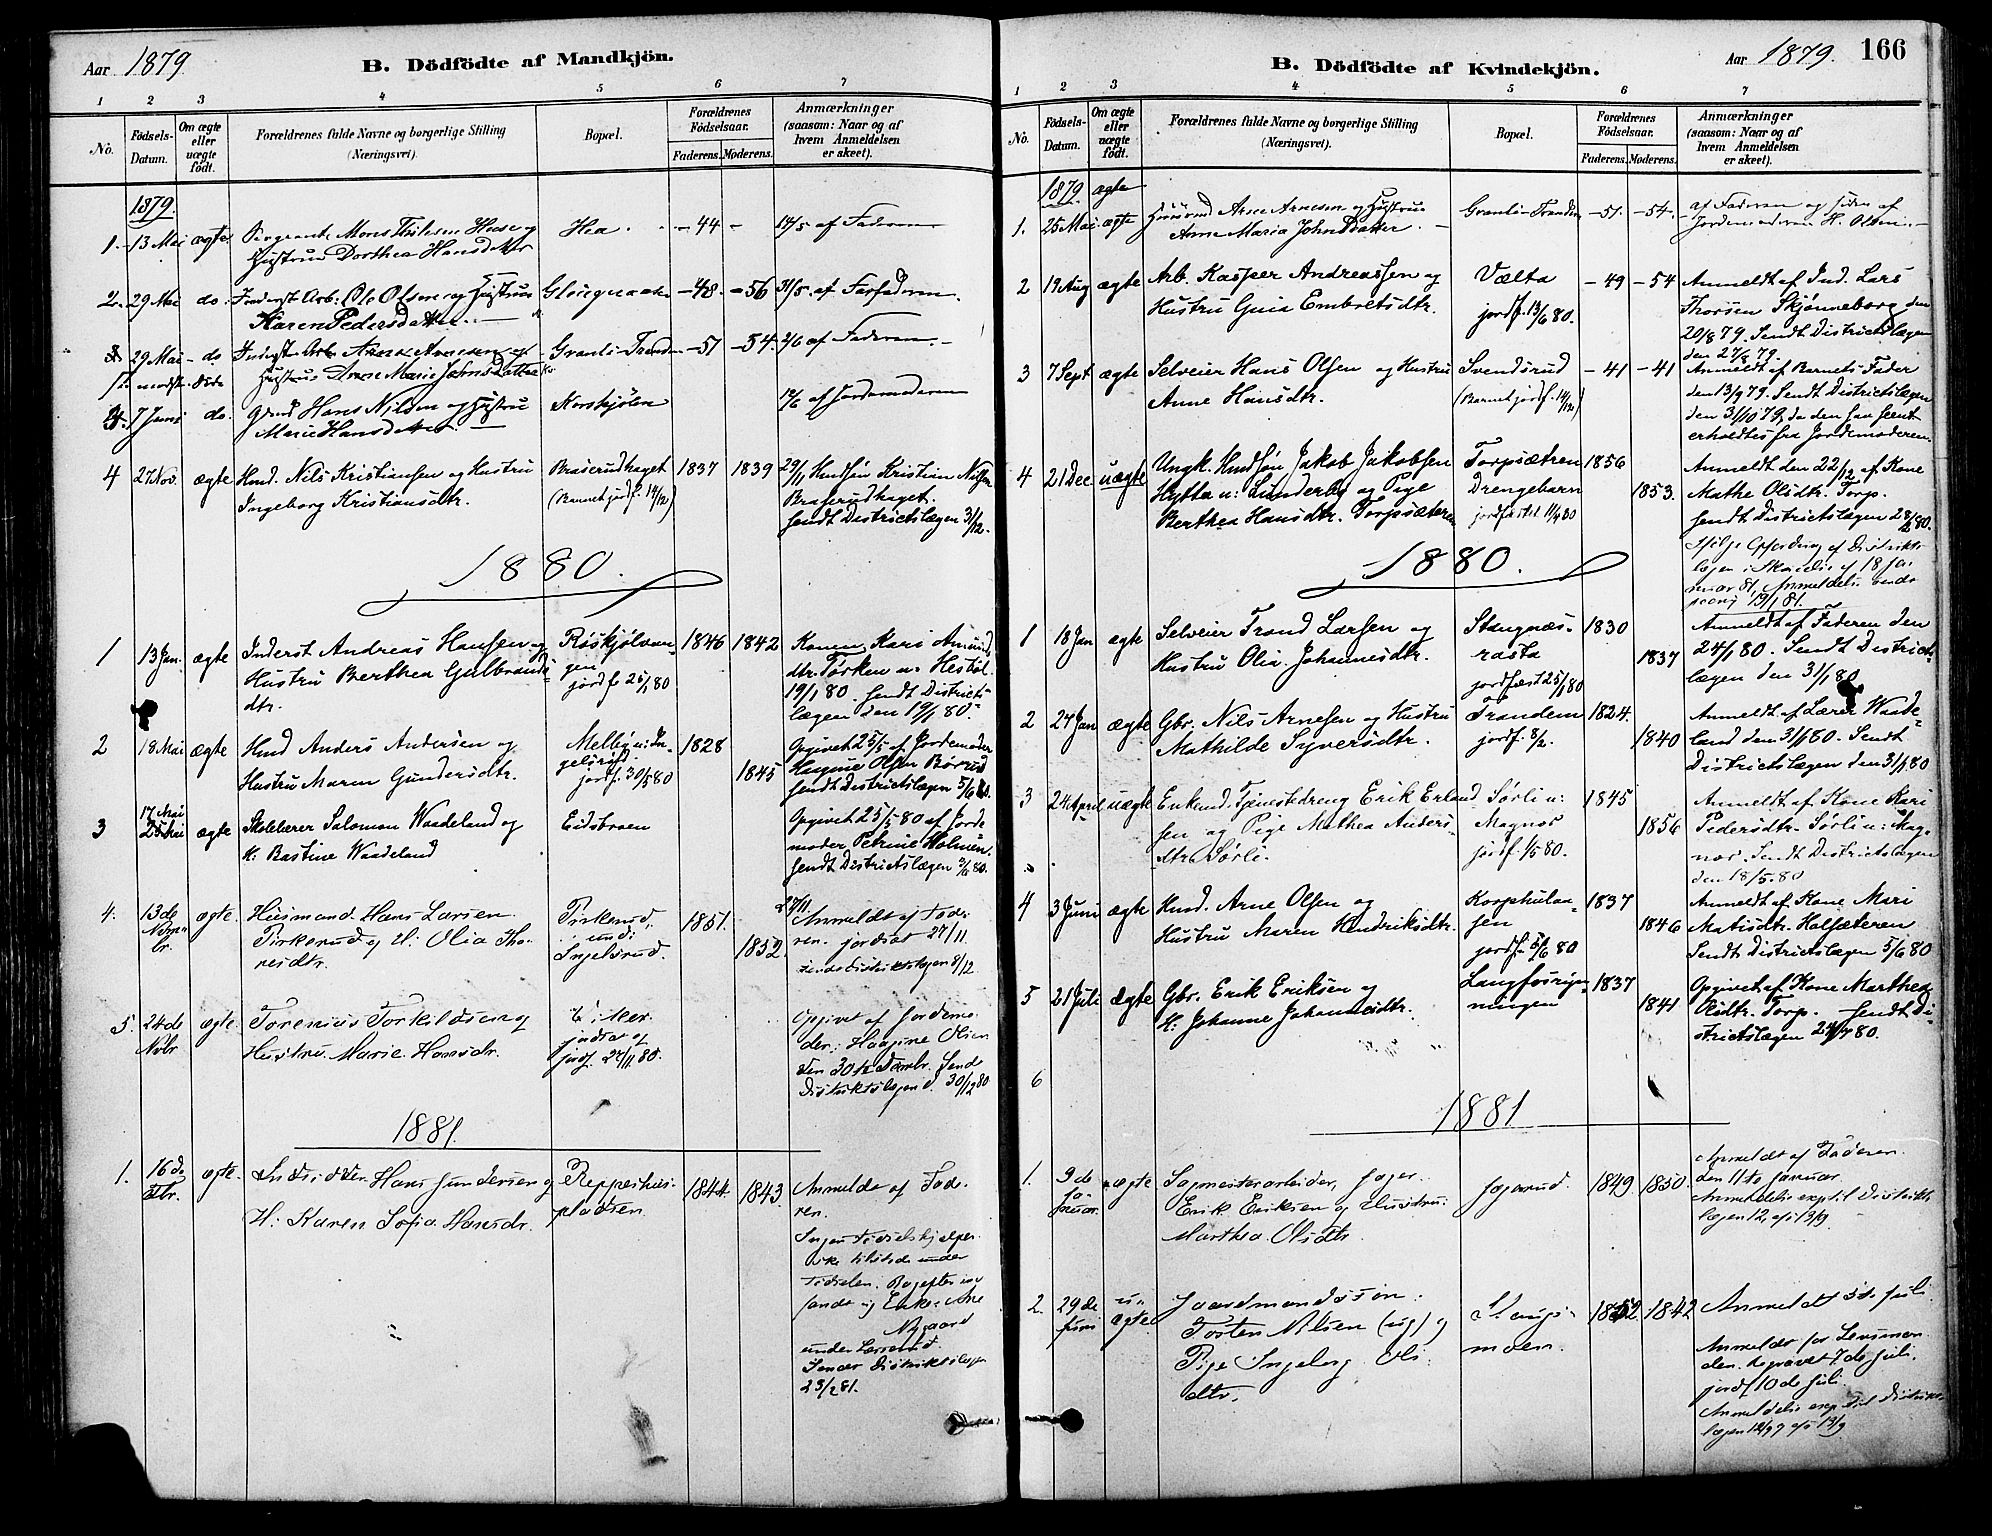 Aar 1879.
B. Dödfödte af Mandkjön.
1 2 3 4 5 6 7
No.
Födsels-Datum.
Om ægte eller uægte födt.
Forældrenes fulde Navne og borgerlige Stilling (Næringsvei).
Bopæl.
Forældrenes Födselsaar.
Faderens. Moderens.
Anmærkninger (saasom: Naar og af hvem Anmeldelsen er skeet).
1879.
1. 13 Mai ægte Sergeant Mons Hea - 44 - af Faderen
Hustru Dorthea Hansdatter
2. 29 Mai do. Inderst Arb. Ole Olsen og Hustru - 48. - 56 31/5. af Farfaderen.
Karen Pedersdatter
29 Mai - do Inderst Arb. Arne Arnesen og Granli-Tranden - 51 - 54. 2/6 af Faderen.
Hustru Anne Marie Johnsdatter
7 Juni do. Hans Nilsen og Hustru Korskjølen af Jordemoderen
Marie Hansdatter
4 27 Nov. ægte Husd. Nils Kristiansen og Hustru Braserudhaget 1837 1839 29/11 Husd Kristian Nilsen
Ingeborg Kristiansdtr. (Barnet jordf. 14/12) Braserudhaget.
Sendt Districtslægen 3/12.
1880.
1 13 Jan. ægte Inderst Andreas Hansen og 1846 1842 Konen Kari Amunds
Hustru Berthea Gulbrands- gen dtr. Torken u: Hestøl
dtr. jordf. 25/1 80 19/1 80. Sendt Districts-
lægen den 19/1 80.
2 18 Mai ægte Husd Anders Andersen og Melby u: In- 1828 Opgivet 25/5 af Jordemoder
Hustru Maren Gundersdtr. gelsrud 1845 Haagine Olsen Børud
jordf. 30/5 80 Sendt Districtslægen 5/6 80.
17 Mai
3 25 Mai ægte Skolelærer Salomon Waadeland og Eidsbraen Opgivet 25/5 80 af Jorde
K: Bastine Waadeland moder Petrine Holmen.
Sendt Districtslægen 2/6 80.
4. 13de Novem-br. ægte. Husmand Hans Larsen Pirkerud 1851. 27/11 Anmeldt af Fade-
Pirkerud og H: Olia Tho- under 1852. ren. jordsat 27/11.
resdtr. Ingelsrud. Sendt Distriktslægen 8/12
5. 24de Nvbr ægte. Torenius Torkildsen og Eiker Opgivet af Jordemo-
Hustru Marie Hansdr. jordsat og der: Haagine Olsen
jordf. 27/11 80. den 30te Novbr. Send
Distriktslægen d. 30/12 80
1881.
1. 16de ægte. Hans Gundersen og Reppeshus- 1844. 1843. Anmeldt af Fade-
H: Karen Sofia Hansdr. pladsen ren.
under
under
Sendt Distriktslægen
23/2 81.
B. Dödfödte af Kvindekjön.
Aar 1879. 166
1 2 3 4 5 6 7
No.
Födsels-Datum.
Om ægte eller uægte födt.
Forældrenes fulde Navne og borgerlige Stilling (Næringsvei).
Bopæl.
Forældrenes Födselsaar.
Faderens. Moderens.
Anmærkninger (saasom: Naar og af hvem Anmeldelsen er skeet).
1879 ægte
1. 25 Mai ægte Arne Arnesen og Hustru Granli-Tranden - 51. - 54. af Faderen og siden af
Anne Maria Johnsdatter. Jordemoderen H. Olsen.
2 19 Aug ægte Arb. Kasper Andreassen og Vælta - 49 - 54 Anmeldt af Ind. Lars
Hustru Guia Embretsdtr. jordf. 13/6 80. Thorsen Skjønneborg den
20/8 79. Sendt Districtslægen
den 27/8 79.
3 7 Sept ægte Selveier Hans Olsen og Hustru Svendsrud - 41 - 41 Anmeldt af Barnets Fader
Anne Hansdtr. (Barnet jordf. 14/12) den 13/9 79. Sendt Districtslægen
den 31/10 79, da den saa seent
erholdtes fra Jordemoderen.
4 21 Dec uægte Ungk. Husdsøn Jakob Jakobsen Torpsætren 1856 Anmeldt den 22/12 af Kone
Hytta u: Lunderby og Pige Drengebarn 1853. Mathe Olsdtr. Torp.
Berthea Hansdtr. Torpsæteren jordfæstet 11/4 80 Sendt Districtslægen 80.
Ifølge Opfordring af Distrikts
lægen i Skrivelse af 18 Ja-
nuar 81, Anmeldelse
19/1 81.
1880.
1 18 Jan ægte Selveier Trond Larsen og Stangnæs- 1830 Anmeldt af Faderen den
Hustru Olia Johannesdtr. rasta 1837 24/1 80. Sendt Districts-
jordfæst 25/1 80 lægen den 31/1 80
2 27 Jan ægte Gbr. Nils Arnesen og Hustru Trandem 1824. Anmeldt af Lærer Waade-
Mathilde Syversdtr. jordf. 8/2. 1840 land den 31/1 80. Sendt
Districtslægen den 31/1 80
3 24 April uægte Enkemd. Tjenestedreng Erik Erland Sørli u: 1845 Anmeldt af Kone Kari
sen og Pige Mathea Anders- Magnor 1856 Pedersdtr. Sørli u: Mag-
dtr. Sørli. jordf. 1/5 80. nor. Sendt Districtslægen
den 18/5 80
4 3 Juni ægte Husd. Arne Olsen og 1837 Anmeldt af Kone Mari
Hustru Maren Hendriksdtr. sen 1846 Matisdtr. Halsæteren
jordf. 5/6 80 Sendt Districtslægen 5/6 80
5 21 Juli ægte Gbr. Erik Eriksen og 1837 Opgivet af Kone Marthea
H: Johanne Johannesdtr. ningen 1841 Olsdtr. Torp. Sendt Di-
strictslægen 24/7 80.
6
1881
1. 9de Januar. ægte Sagmesterarbeider, Jager Jagerud. 1849 1850 Anmeldt af Faderen
Erik Eriksen og Hustru: den 11te Januar.
Marthea Olsdtr Anmeldelse exp. til Distrikts
lægen
2. 29de Juni u-ægte Gaardmandssøn 1852 1842 Anmeldt Juli
Torsten Nilsen (ug) og moen. Anmeldt for Lensman
Pige Ingeborg Ols den. begravet 7de Juli.
dtr. jordf 10de Juli
Anmeldelse exp til Distrikts
lægen